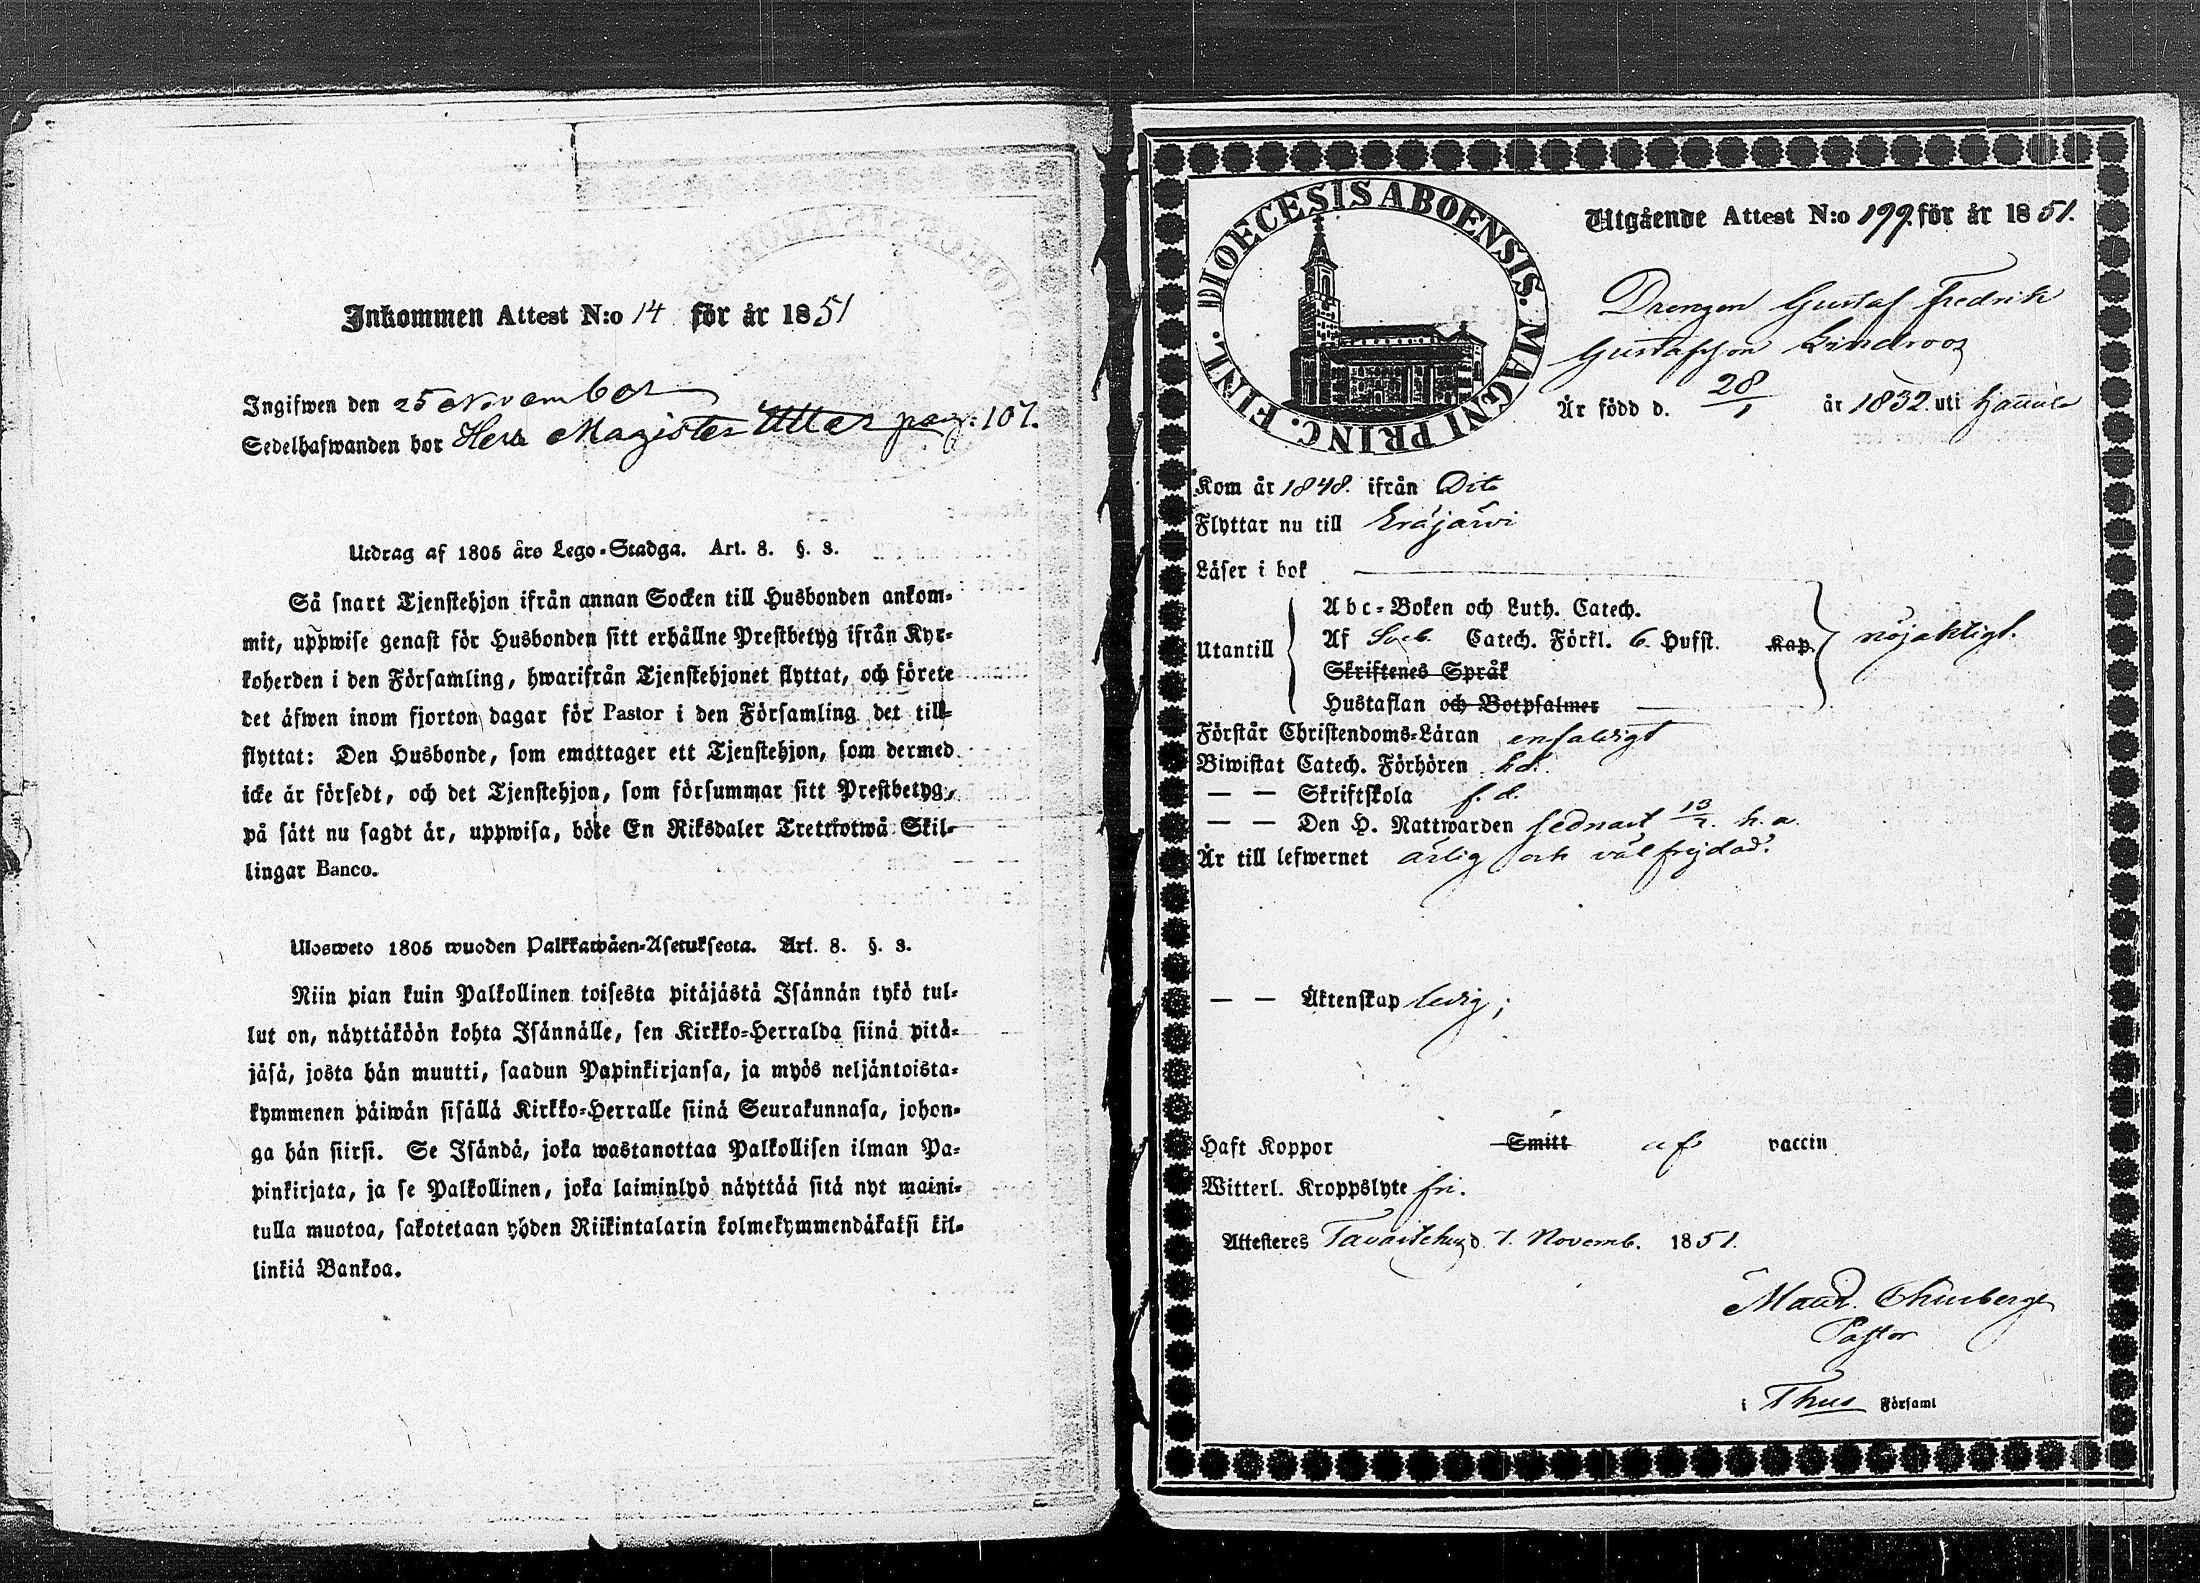 Inkommen Attest N:o 14 för år 1851
Ingifwen den 25 November
Sedelhafwanden bor Herr Magister pag: 107.
Utdrag af 1805 års Lego-Stadga. Art. 8. §. 3.
Så snart Tjenstehjon ifrån annan Socken till Husbonden ankom-
mit, uppwise genast för Husbonden sitt erhållne Prestbetyg ifrån Kyr-
koherden i den Församling, hwarifrån Tjenstehjonet flyttat, och förete
det äfwen inom fjorton dagar för Pastor i den Församling det till-
flyttat: Den Husbonde, som emottager ett Tjenstehjon, som dermed
icke är försedt, och det Tjenstehjon, som försummar sitt Prestbetyg,
på sätt nu sagdt är, uppwisa, böte En Riksdaler Trettiotwå Skil-
lingar Banco.
Ulosweto 1805 wuoden Palkkawäen-Asetuksesta. Art. 8. §. 3.
Niin pian kuin Palkollinen toisesta pitäjästä Isännän tykö tul-
lut on, näyttäköön kohta Isännälle, sen Kirkko-Herralda siinä pitä-
jäsä, josta hän muutti, saadun Papinkirjansa, ja myös neljäntoista-
kymmenen päiwän sisällä Kirkko-Herralle siinä Seurakunnasa, johon-
ga hän siirsi. Se Isändä, joka wastanottaa Palkollisen ilman Pa-
pinkirjata, ja se Palkollinen, joka laiminlyö näyttää sitä nyt maini-
tulla muotoa, sakotetaan yhden Riikintalarin kolmekymmendäkaksi kil-
linkiä Bankoa.
DIOECESIS ABOENSIS. MAGNI PRINC. FINL.
Utgående Attest N:o 199. för år 1851.
Drengen Gustaf Fredrik
Gustafsson Lindroos
Är född d. 28/1 år 1832. uti
Kom år 1848. ifrån Dito
Flyttar nu till Eräjärvi
Läser i bok
Utantill
Abc-Boken och Luth. Catech.
Af Sveb. Catech. Förkl. 6. Hufst. Kap. nöjaktligt.
Skriftenes Språk
Hustaflan och Botpsalmer
Förstår Christendoms-Läran enfaldigt
Biwistat Catech. Förhören
— — Skriftskola f. d.
— — Den H. Nattwarden sednast 13/7. h. a.
Är till lefwernet ärlig och välfrejdad.
— — Äktenskap ledig;
Haft Koppor Smitt af vaccin
Witterl. Kroppslyte fri.
Attesteres Tavastehus d. 7. Novemb. 1851.
Maur. Thurberg
Pastor
i Thus Församl